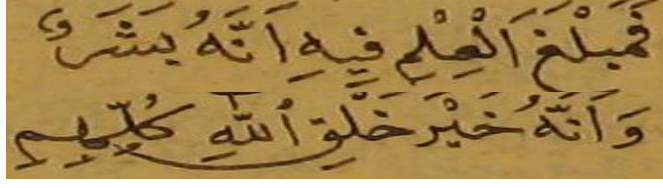 فَمَبْلَغُ الْعِلْمِ فِيهِ أَنَّهُ بَشَرٌ
وَأَنَّهُ خَيْرُ خَلْقِ اللهِ كُلِّهِمِ